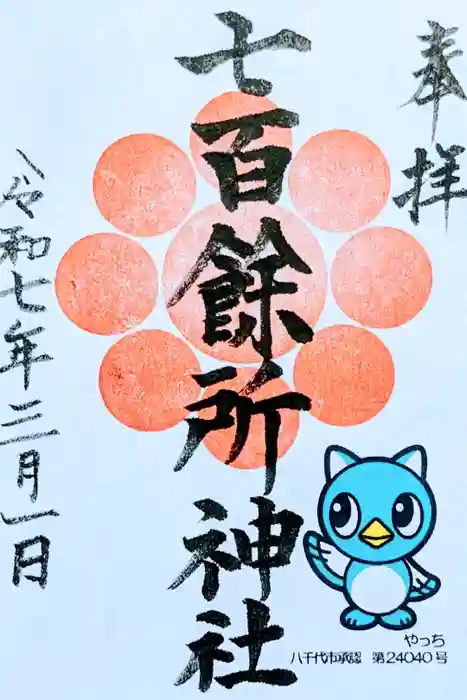 奉拝
七百餘所神社
令和七年三月一日
やっち
八千代市承認 第24040号